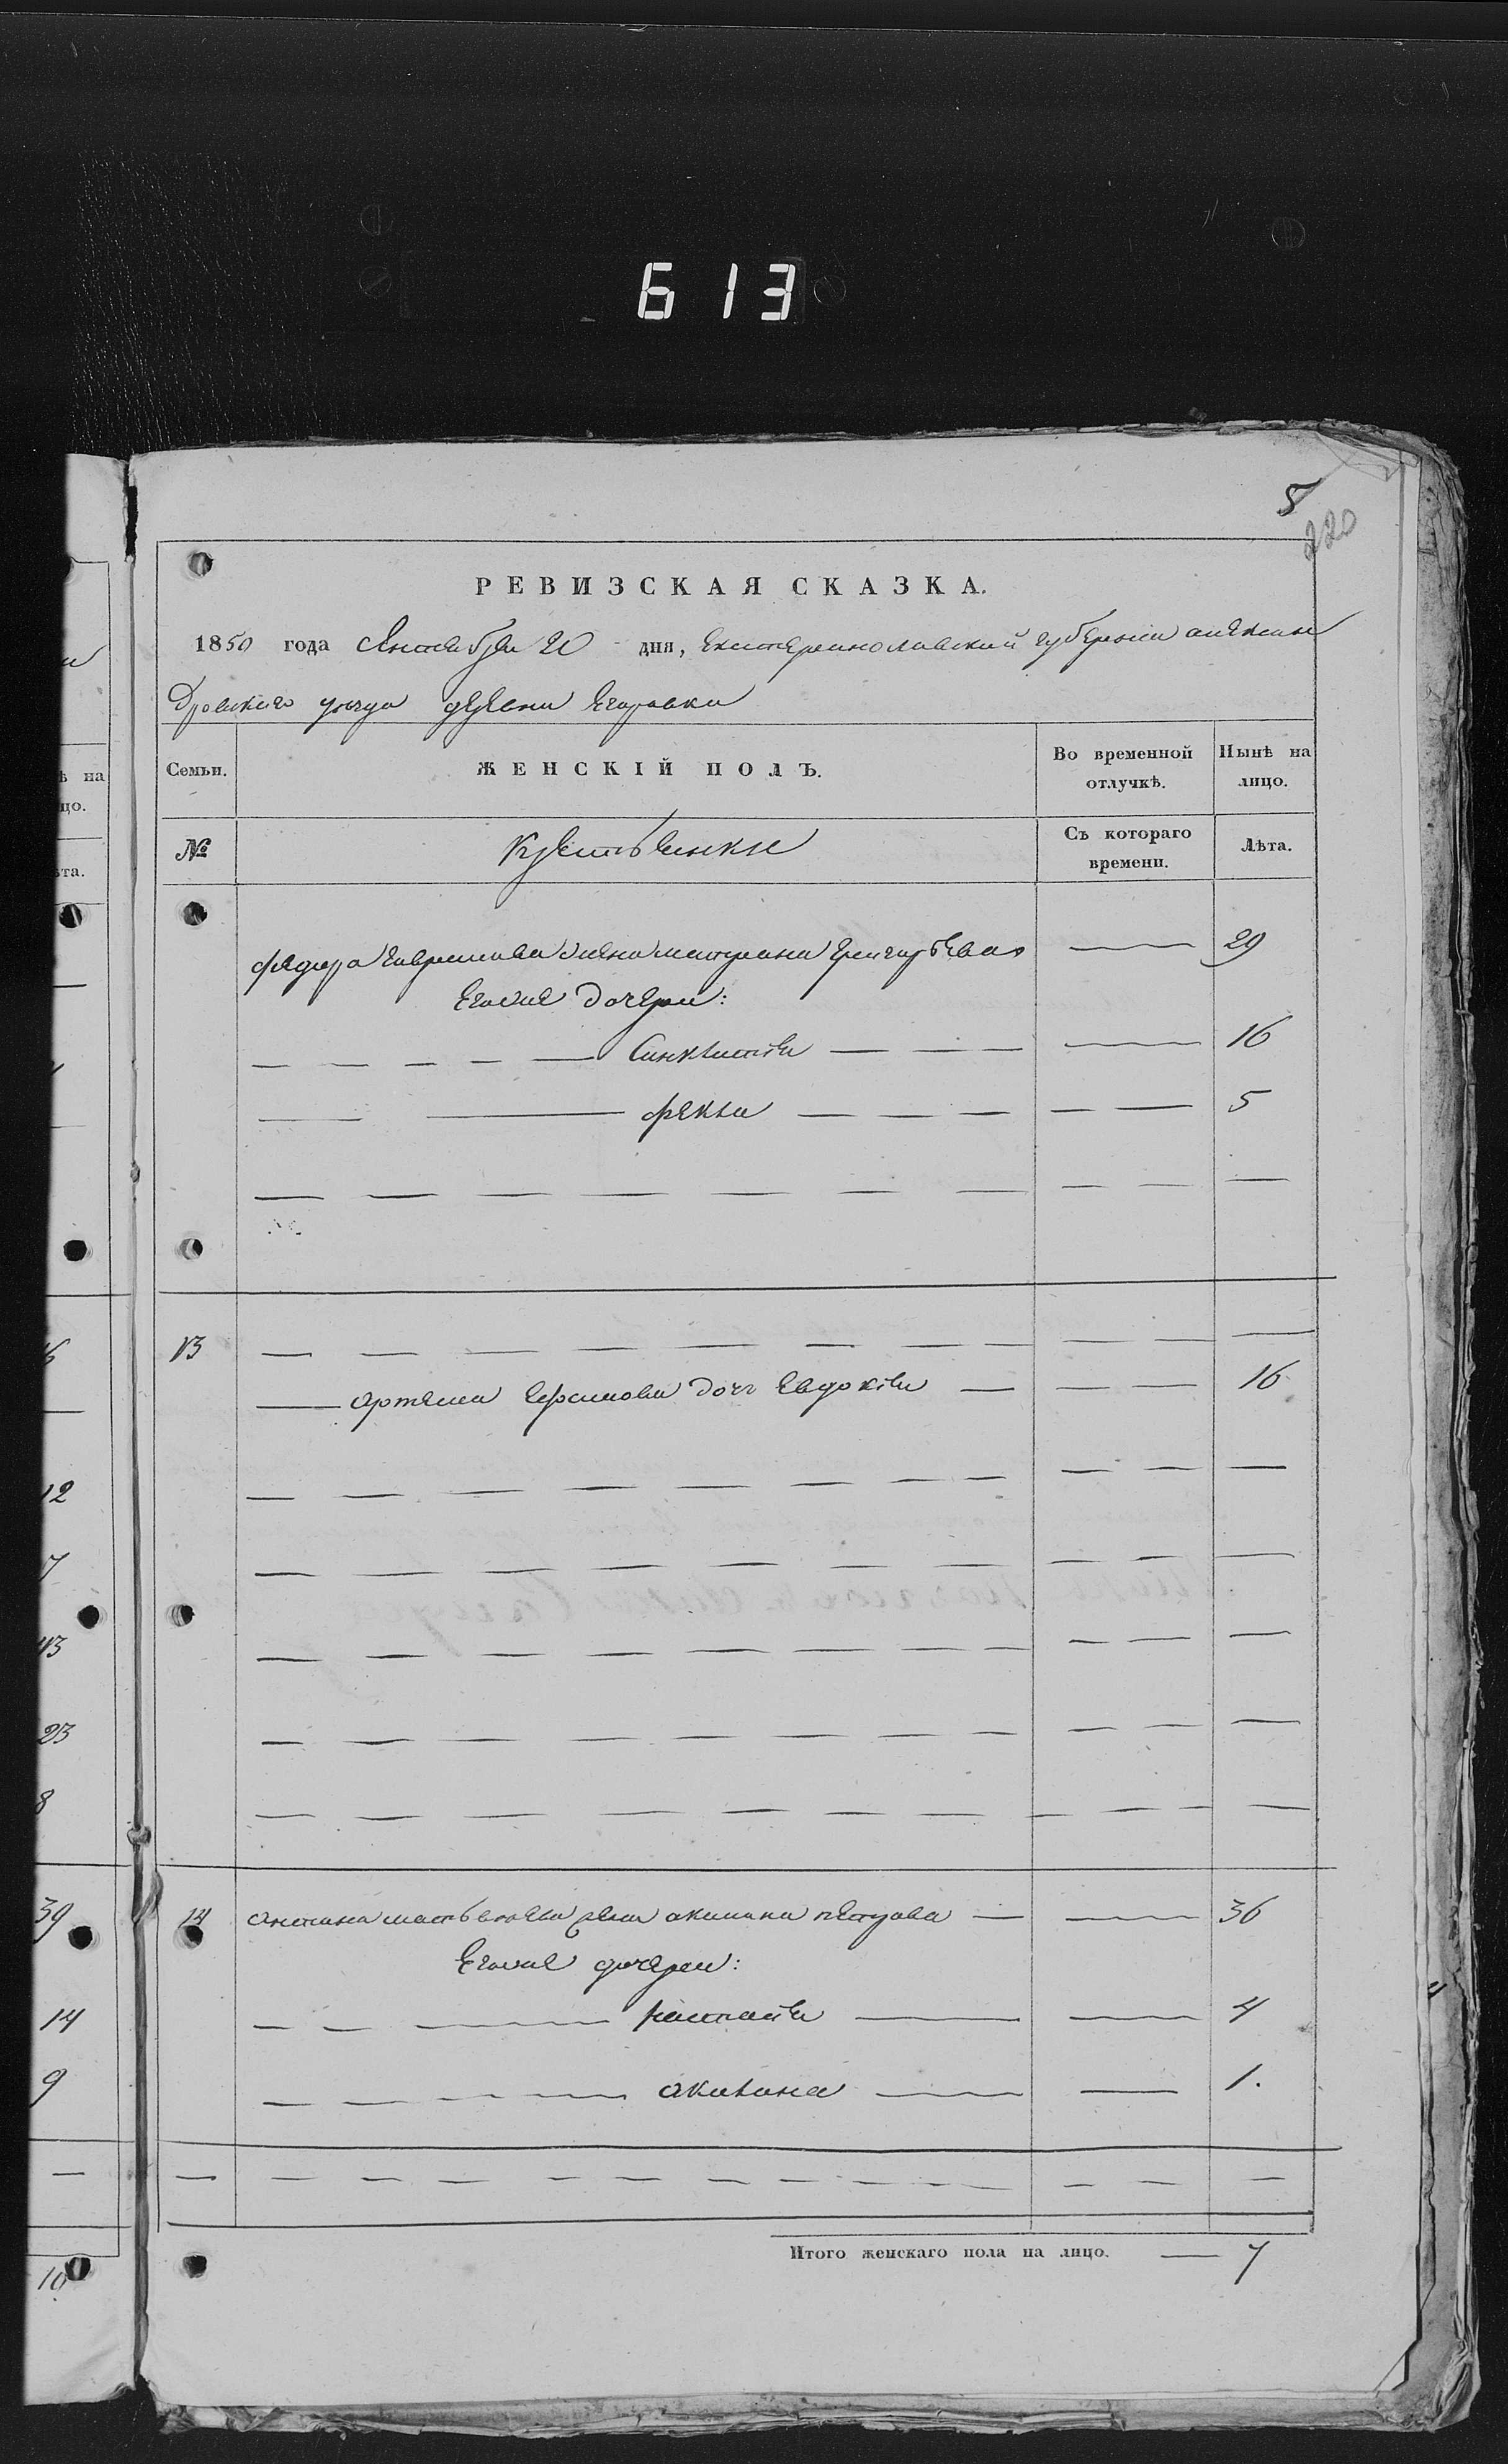 613
5
220
РЕВИЗСКАЯ СКАЗКА.
1850 года Октября 20 дня, Екатеринославской губернии алексан
дровского уезда деревни Егоровки
Семьи.
ЖЕНСКІЙ ПОЛЪ.
Во временной отлучкѣ.
Нынѣ на лицо.
№
Крестьянки
Съ котораго времени.
Лѣта.
федора гаврилова жена матрона григорьева 29
Егоже дочери:
Синклития 16
фекла 5
13
артема Ефимова дочь Евдокия 16
14 антона матвеева жена акилина петрова 36
Егоже дочери:
настасия 4
акилина 1.
Итого женскаго пола на лицо. 7
ѣ на
цо.
ѣта.
12
7
13
23
8
39
14
9
10